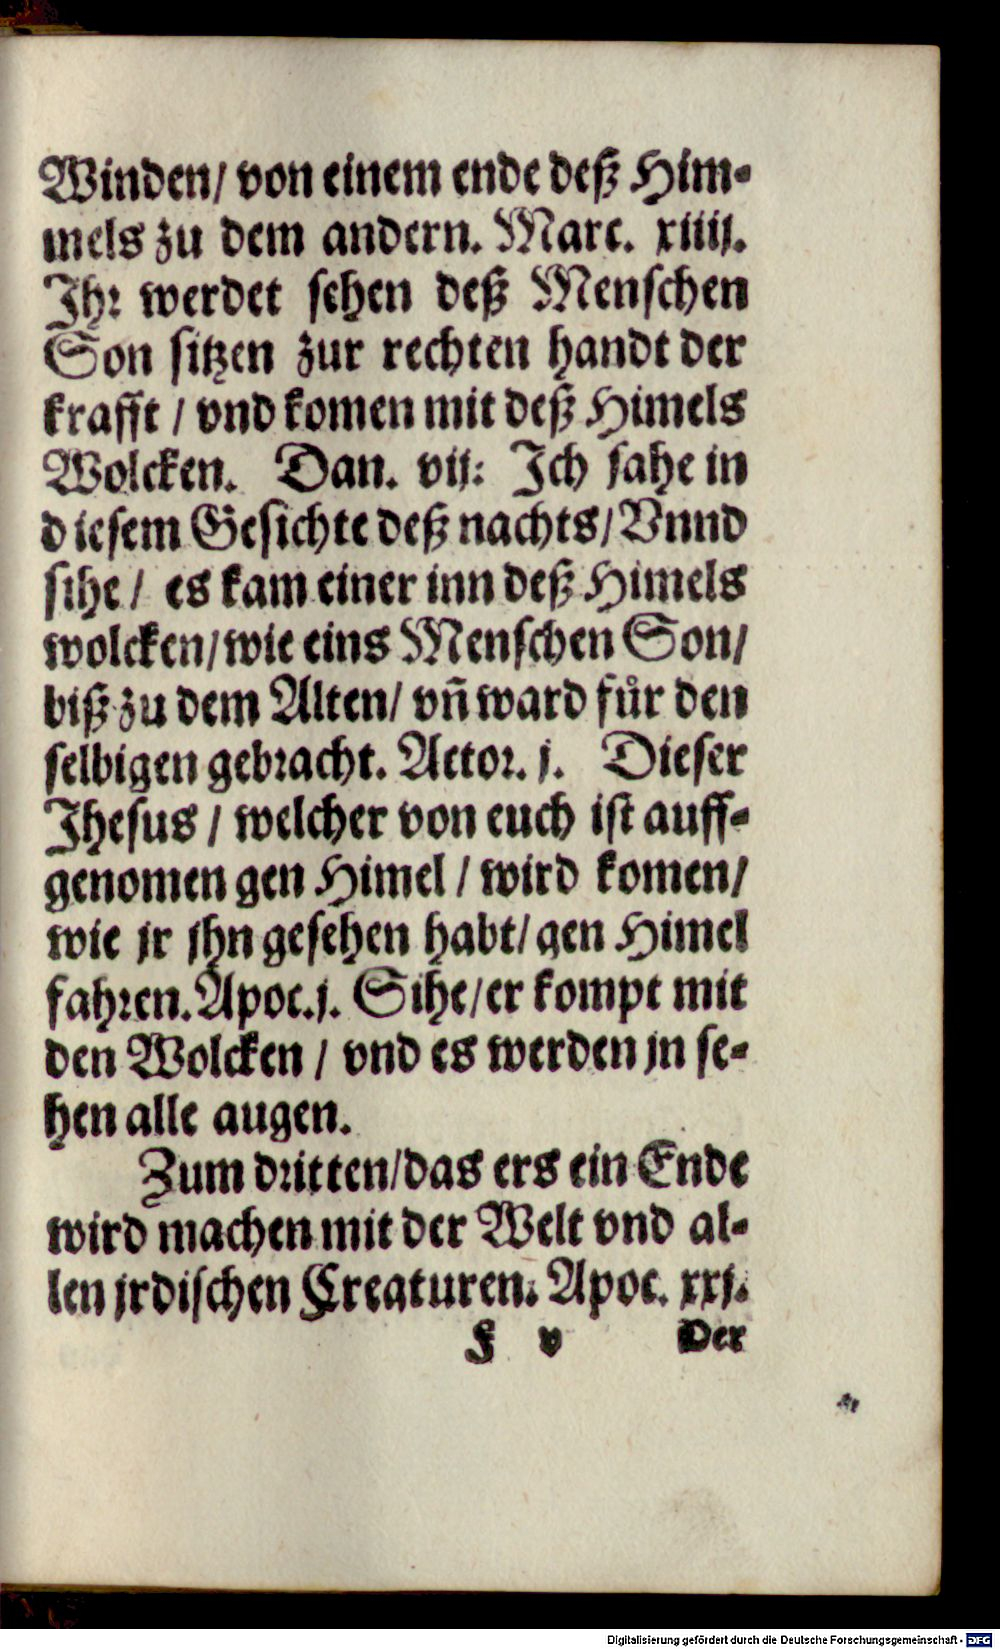 Winden/ von einem ende deß Him-
mels zu dem andern. Marc. xiiij.
Ihr werdet sehen deß Menschen
Son sitzen zur rechten handt der
krafft / vnd komen mit deß Himels
Wolcken. Dan. vij: Ich sahe in
diesem Gesichte deß nachts/ Vnnd
sihe / es kam einer inn deß Himels
wolcken/ wie eins Menschen Son/
biß zu dem Alten/ vñ ward fuͤr den
selbigen gebracht. Actor. j. Dieser
Jhesus / welcher von euch ist auff-
genomen gen Himel / wird komen/
wie jr jhn gesehen habt/ gen Himel
fahren. Apoc. j. Sihe/ er kompt mit
den Wolcken / vnd es werden jn se-
hen alle augen.
Zum dritten/ das ers ein Ende
wird machen mit der Welt vnd al-
len jrdischen Creaturen. Apoc. xxj.
F v Der
Digitalisierung gefördert durch die Deutsche Forschungsgemeinschaft - DFG